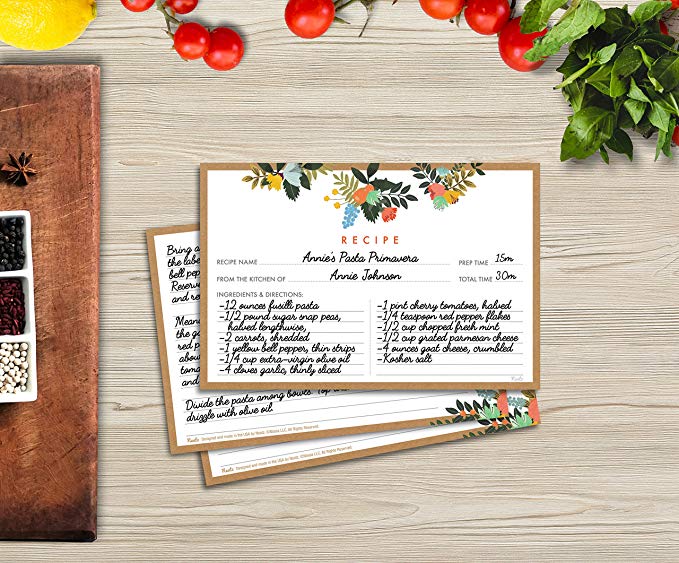 RECIPE
RECIPE NAME Annie's Pasta Primavera PREP TIME 15m
FROM THE KITCHEN OF Annie Johnson TOTAL TIME 30m
INGREDIENTS & DIRECTIONS:
-12 ounces fusilli pasta
-1/2 pound sugar snap peas,
halved lengthwise,
-2 carrots, shredded
-1 yellow bell pepper, thin strips
-1/4 cup extra-virgin olive oil
-4 cloves garlic, thinly sliced
-1 pint cherry tomatoes, halved
-1/4 teaspoon red pepper flakes
-1/2 cup chopped fresh mint
-1/2 cup grated parmesan cheese
-4 ounces goat cheese, crumbled
-Kosher salt
Bring a
the labe
bell pep
Reserv
and re
Mean
the go
red p
abou
toma
to
Divide the pasta among bowls. Top
drizzle with olive oil.
Designed and made in the USA by Nuolz. ©Nooza LLC. All Rights Reserved.
Designed and made in the USA by
All Rights Reserved.